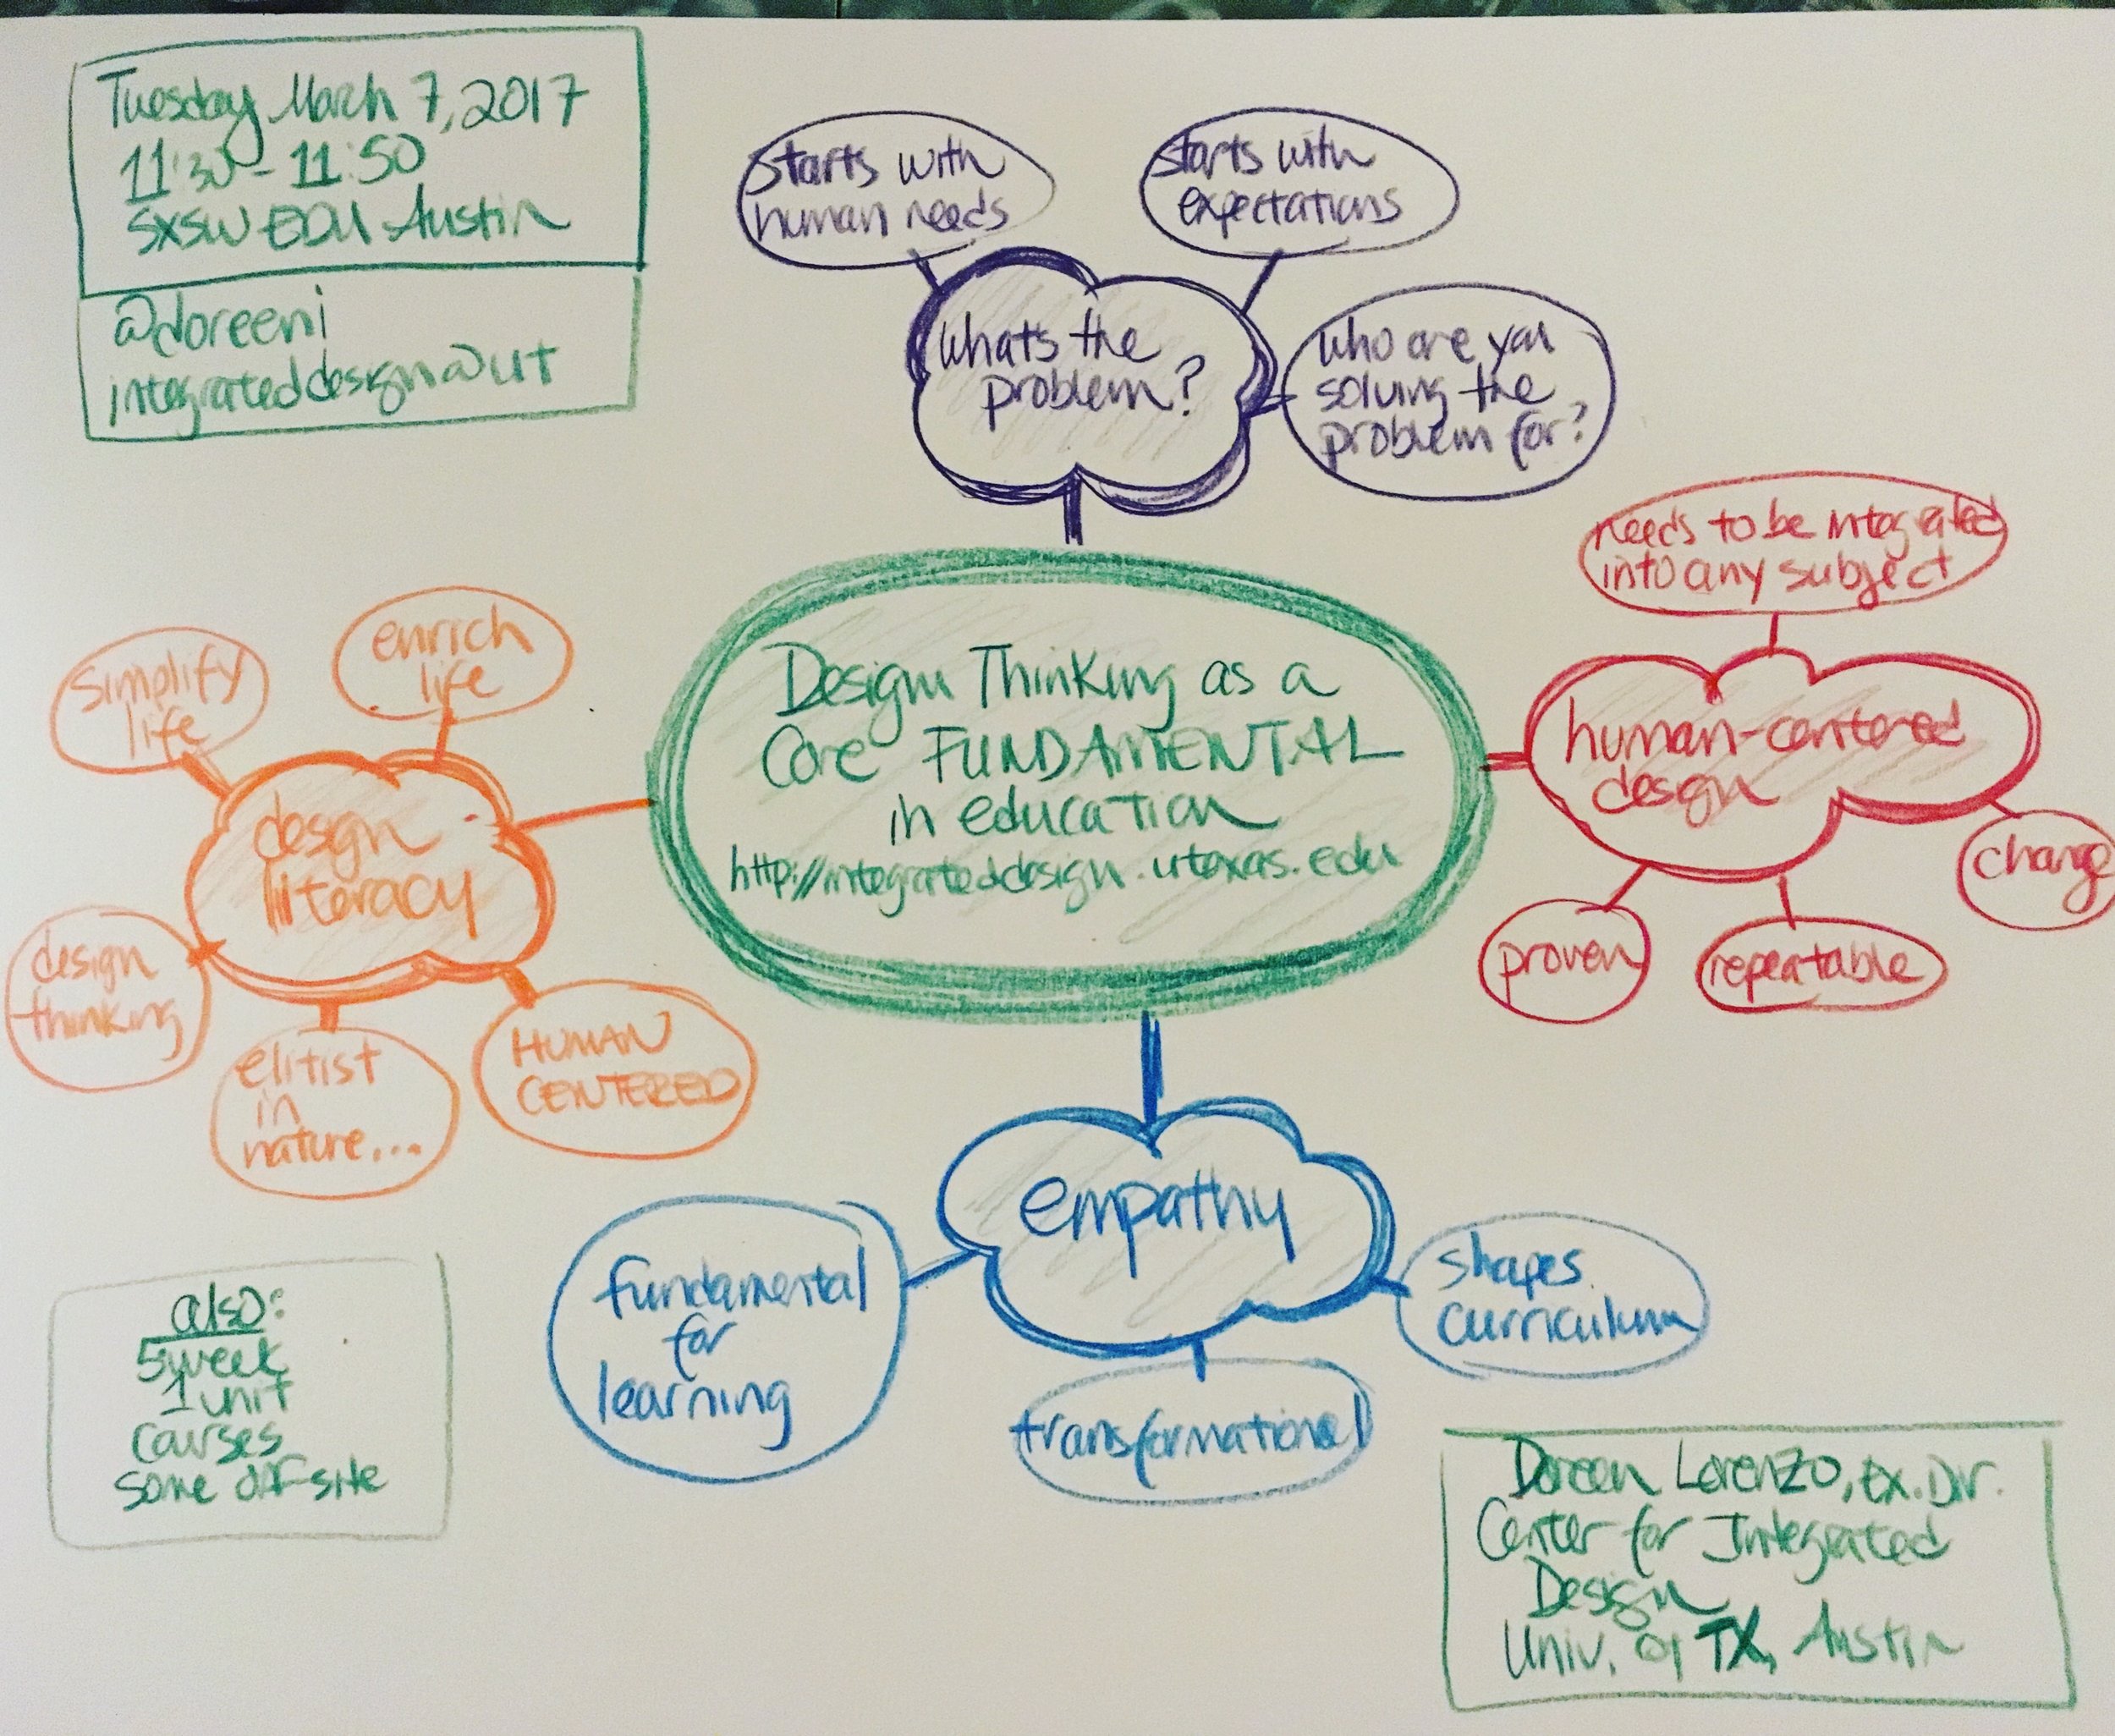 Tuesday March 7, 2017
11:30 - 11:50
SXSW EDU Austin
@doreeni
integrateddesign@ut
starts with
human needs
starts with
expectations
whats the
problem?
who are you
solving the
problem for?
needs to be integrated
into any subject
human-centered
design
change
proven
repeatable
Design Thinking as a
Core FUNDAMENTAL
in education
http://integrateddesign.utexas.edu
simplify
life
enrich
life
design
literacy
design
thinking
elitist
in
nature...
HUMAN
CENTERED
empathy
fundamental
for
learning
transformational
shapes
curriculum
also:
5 week
1 unit
courses
some off-site
Doreen Lorenzo, Ex. Dir.
Center for Integrated
Design
Univ. of TX, Austin